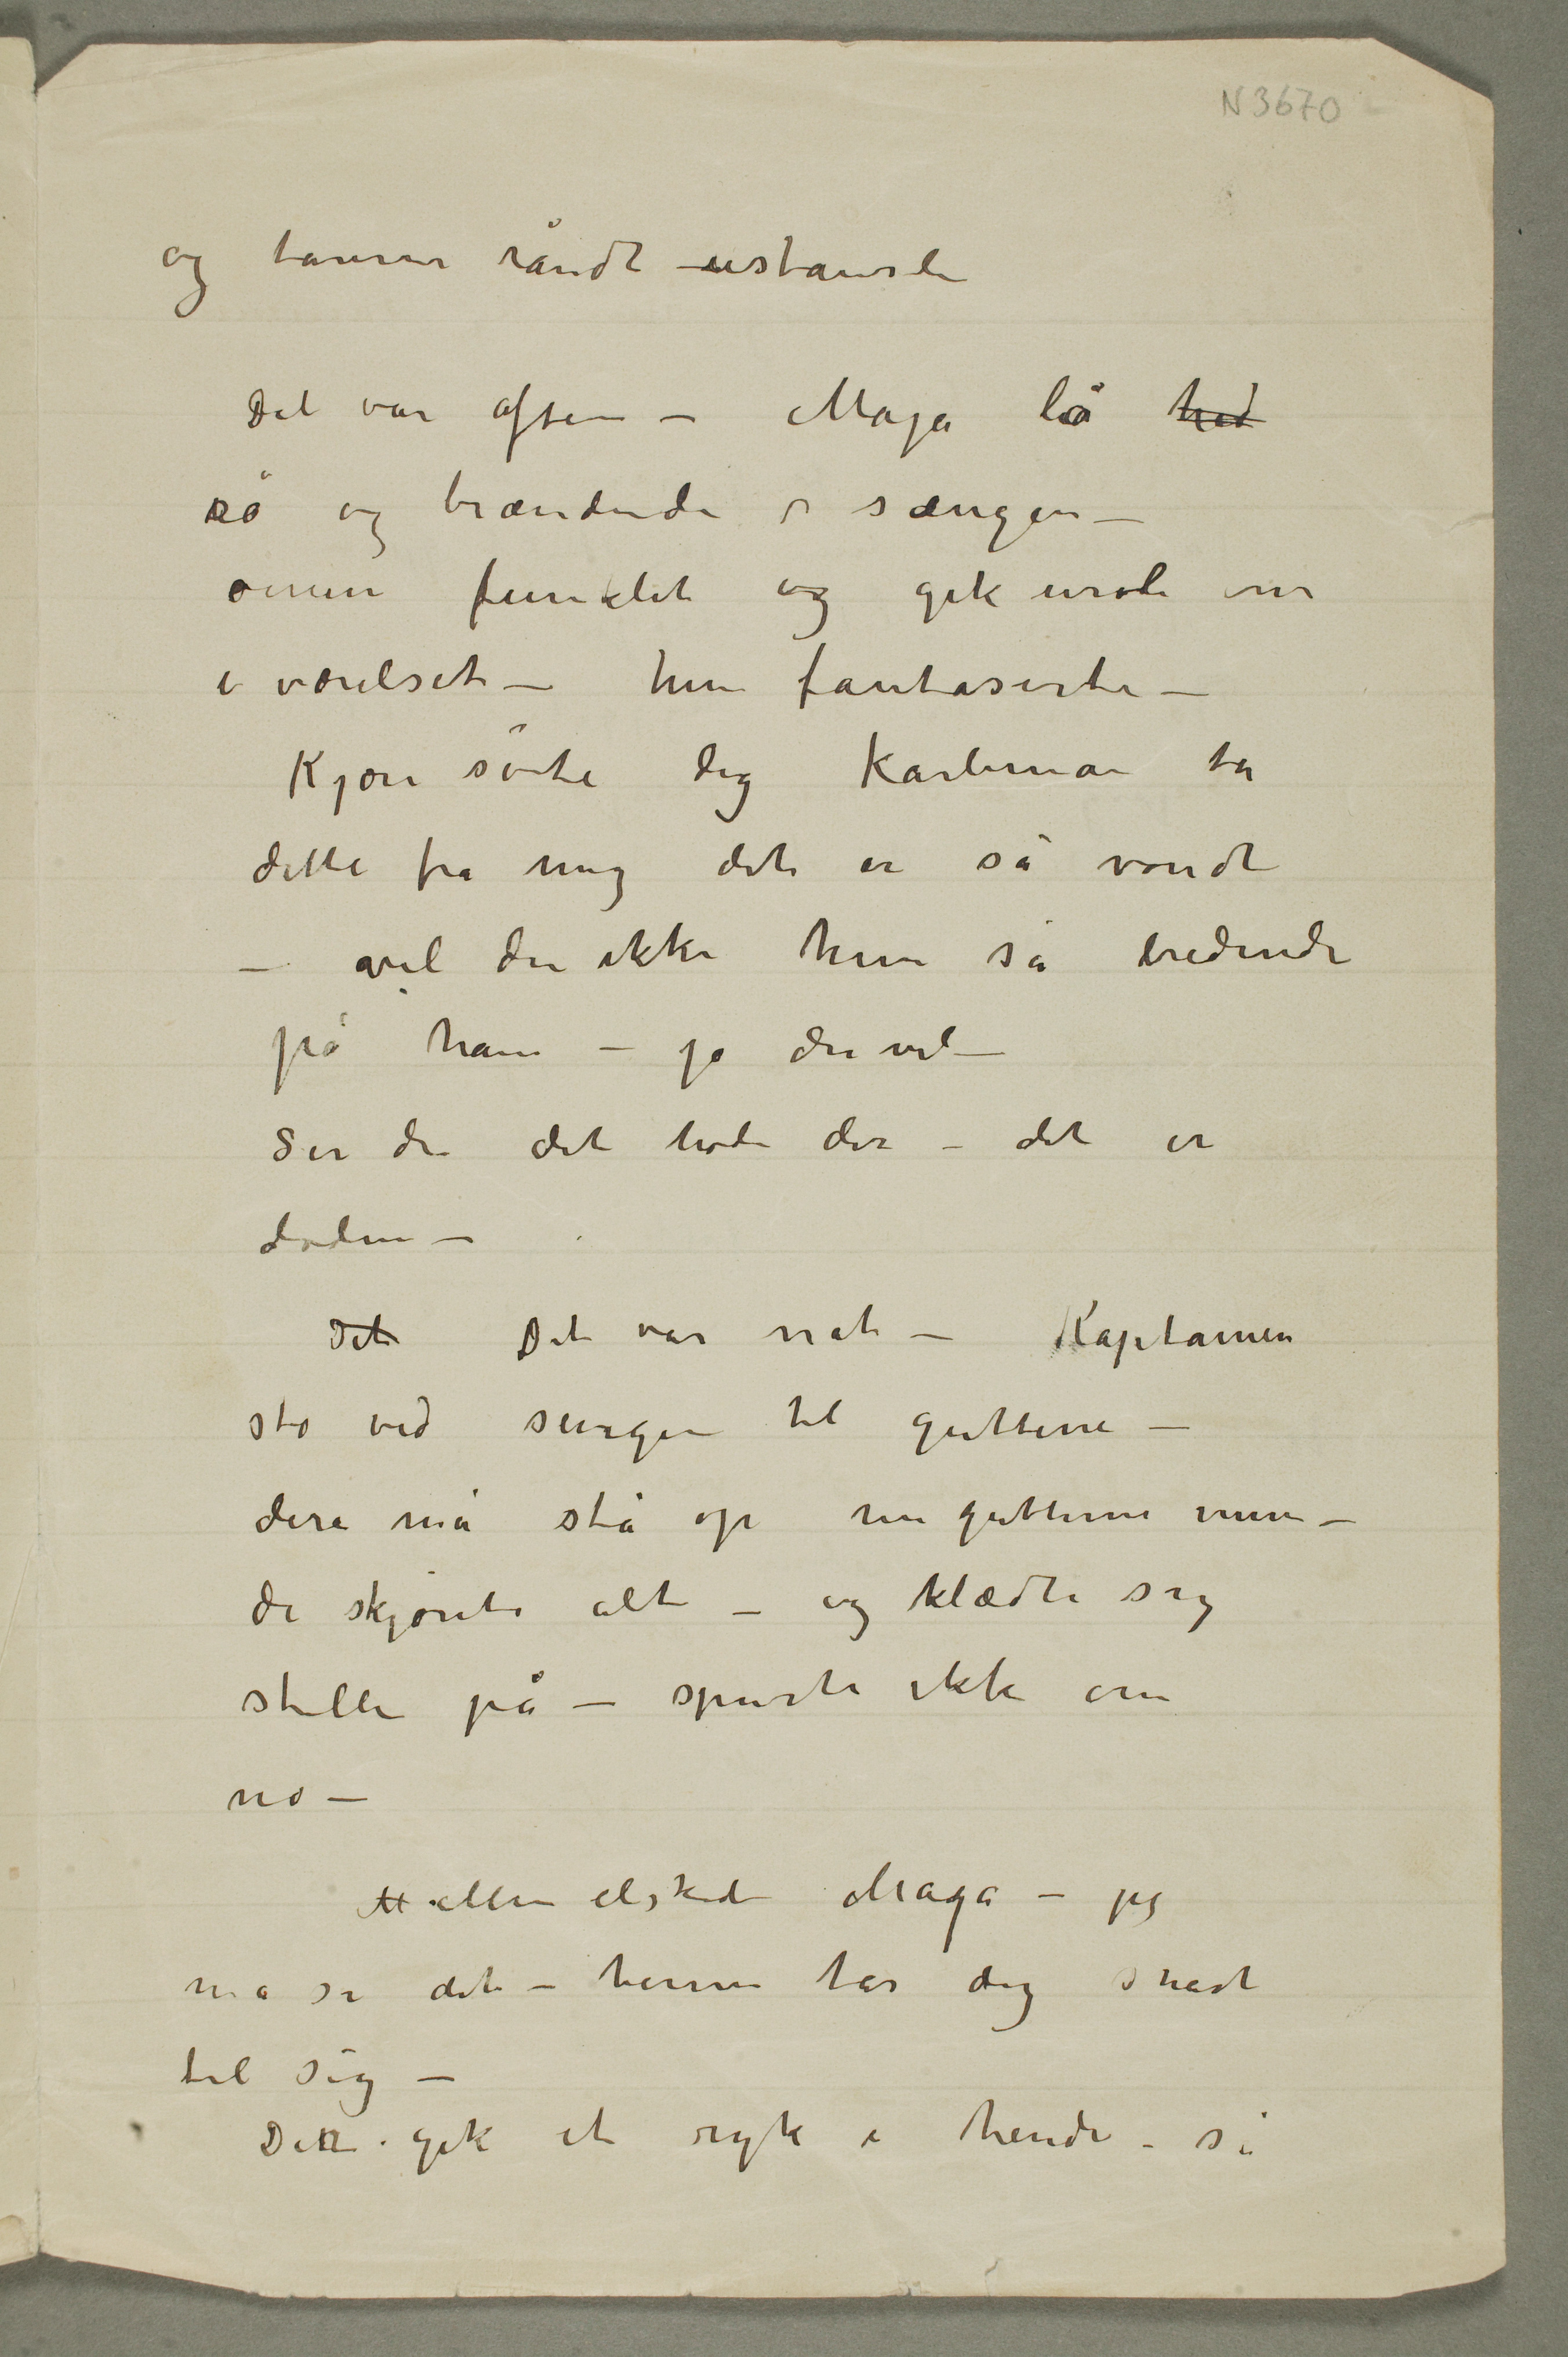 N 3670
og rundt ustanseli
Det var aften – Maja lå hed
rø og brændende i sængen –
øinene funklet og gik uroli om
i værelset – hun fantaserte –
Kjøre søte dig Karleman ta
dette fra mig det er så vondt
– vil du ikke hun så bedende
på ham – jo du vil –
Ser du det hode der – det er
døden –
Det Det var nat – Kaptainen
sto ved sengen til guttene –
dere må stå op nu guttene mine –
de skjønte alt – og klædte sig
stille på – spurte ikke om
no –
M Min elskede Maja – jeg
må si det – herren tar dig snart
til sig –
Der gik et ryk i hende – så